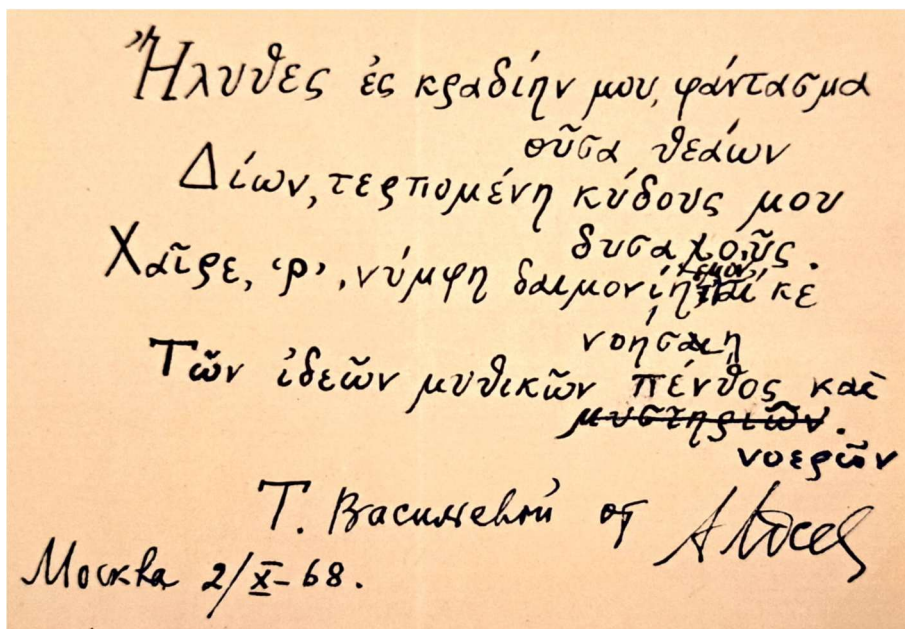 Ἤλυθες ἐς κραδίην μου, φάντασμα
οὖσα θεάων
Δίων, τερπομένη κύδους μου
δυσαχοῦς.
Χαῖρε, ‘ρ’, νύμφη δαιμονίη κὲ
Τῶν ἰδεῶν μυθικῶν πένθος καὶ
μυστηριῶν.
νοερῶν
Т. Васильевой от А Лосев
Москва 2/X-68.